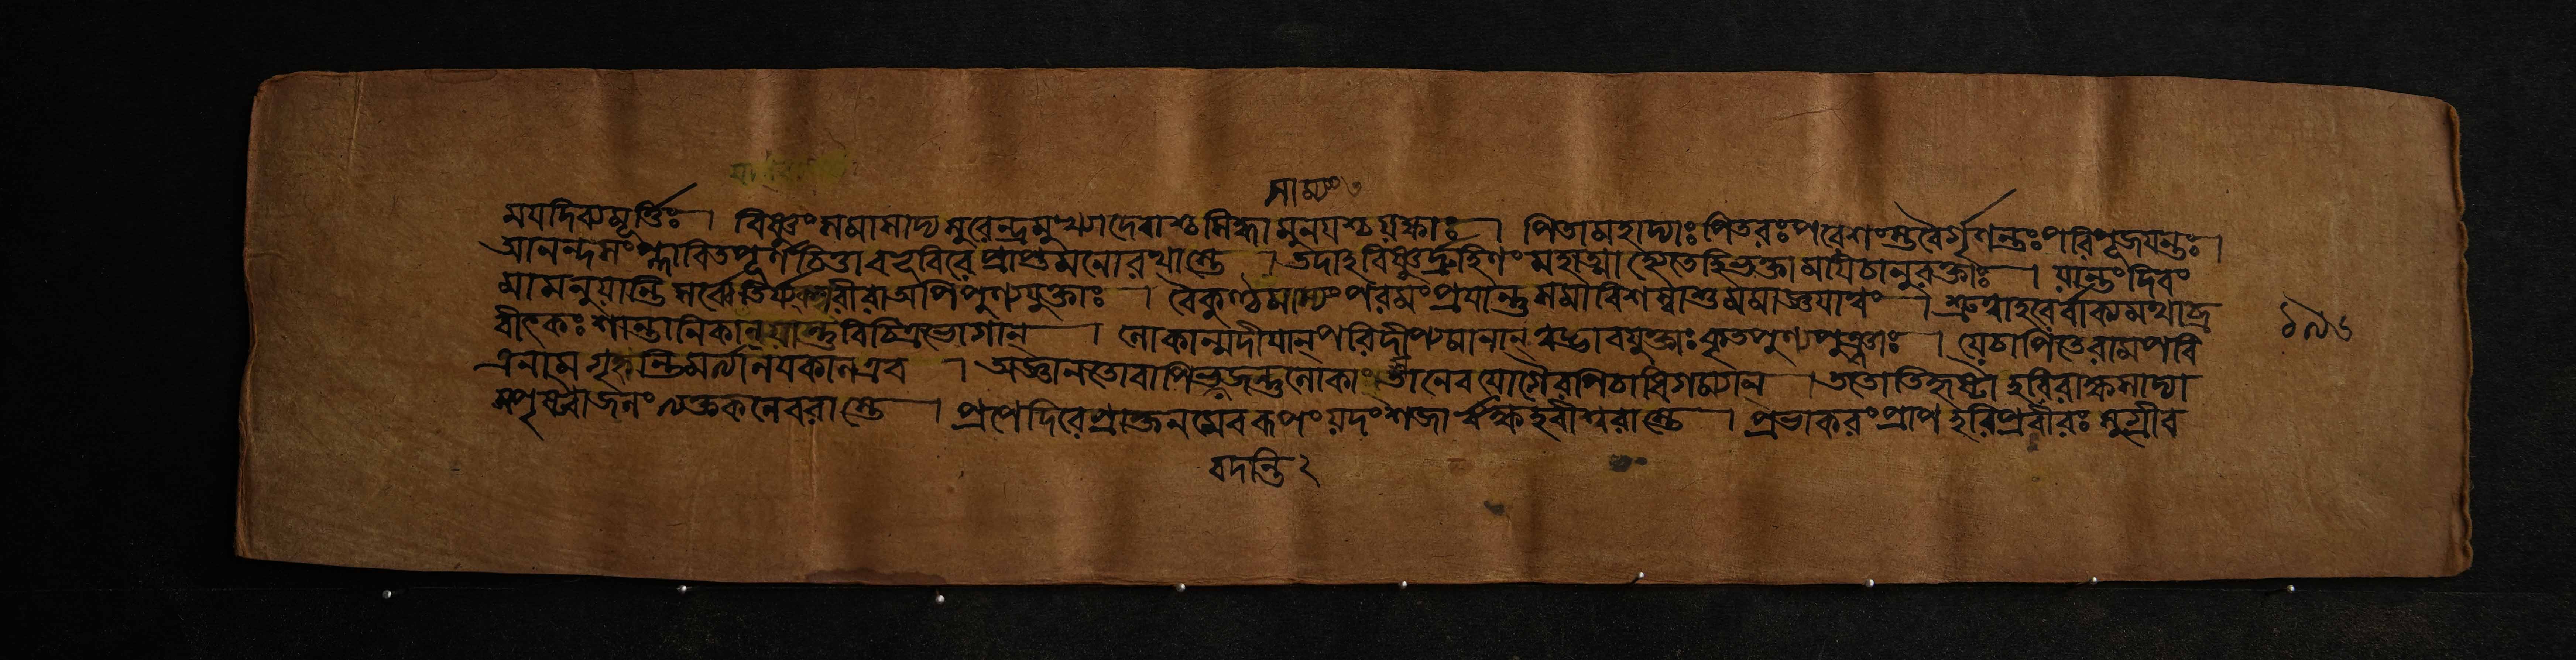 সাম্যং৩
মযদিব্যমূর্ত্তিঃ । বিষ্ণুং সমাসাদ্য সুরেন্দ্রমুখ্যা দেবাশ্চ সিদ্ধা মুনযশ্চ যক্ষাঃ । পিতামহাদ্যাঃ পিতরঃ পরেশং স্তবৈর্গৃণন্তঃ পরিপূজযন্তঃ ।
আনন্দসংপ্লাবিতপূর্ণচিত্তা বভূবিরে প্রাপ্তমনোরথাস্তে । তদাহ বিষ্ণুর্দ্রুহিণং মহাত্মা হ্যেতে হি ভক্তা মযি চানুরক্তাঃ । যান্তং দিবং
মামনুযান্তি সর্ব্বে তির্যক্শরীরা অপি পুণ্যযুক্তাঃ । বৈকুণ্ঠসাম্যং পরমং প্রযান্তু সমাবিশস্বাশু মমাজ্ঞযাত্বং । শ্রুত্বা হরের্বাক্যমথাব্র
বীৎকঃ শান্তানিকান্ যান্তু বিচিত্রভোগান্ । লোকান্মদীযান্ পরিদীপ্যমানান্ ত্বদ্ভাবযুক্তাঃ কৃতপুণ্যপুঞ্জাঃ । যে চাপি তে রাম পবি
ত্রনাম গৃণন্তি মর্ত্যা লযকাল এব । অজ্ঞানতো বাপি ভজন্তু লোকাংস্তানেব যোগৈরপি চাধিগম্যান্ । ততোতিহৃষ্টা হরিরাক্ষসাদ্যা
স্পৃষ্ট্বা জলং ত্যক্তকলেবরাস্তে । প্রপেদিরে প্রাক্তনমেব রূপং যদংশজা ঋক্ষহরীশ্বরাস্তে । প্রভাকরং প্রাপ হরিপ্রবীরঃ সুগ্রীব
বদন্তি২